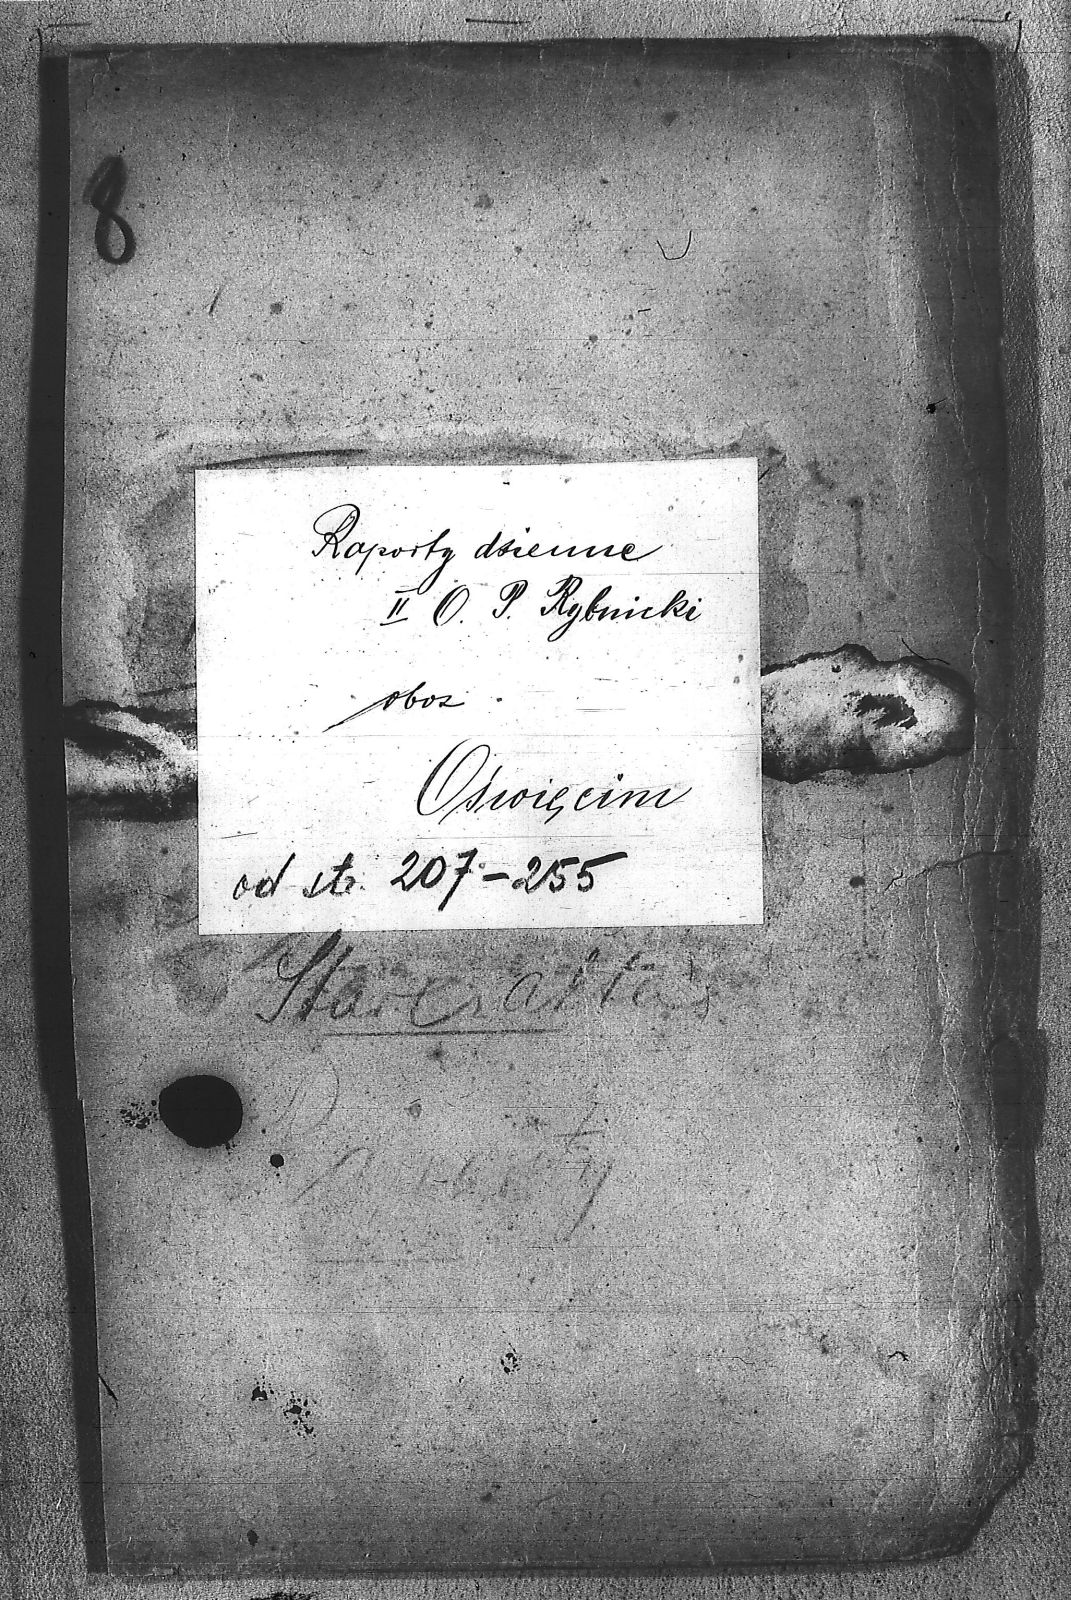 8
Raporty dzienne
II O. P. Rybnicki
obóz
Oświęcim
od str. 207-255